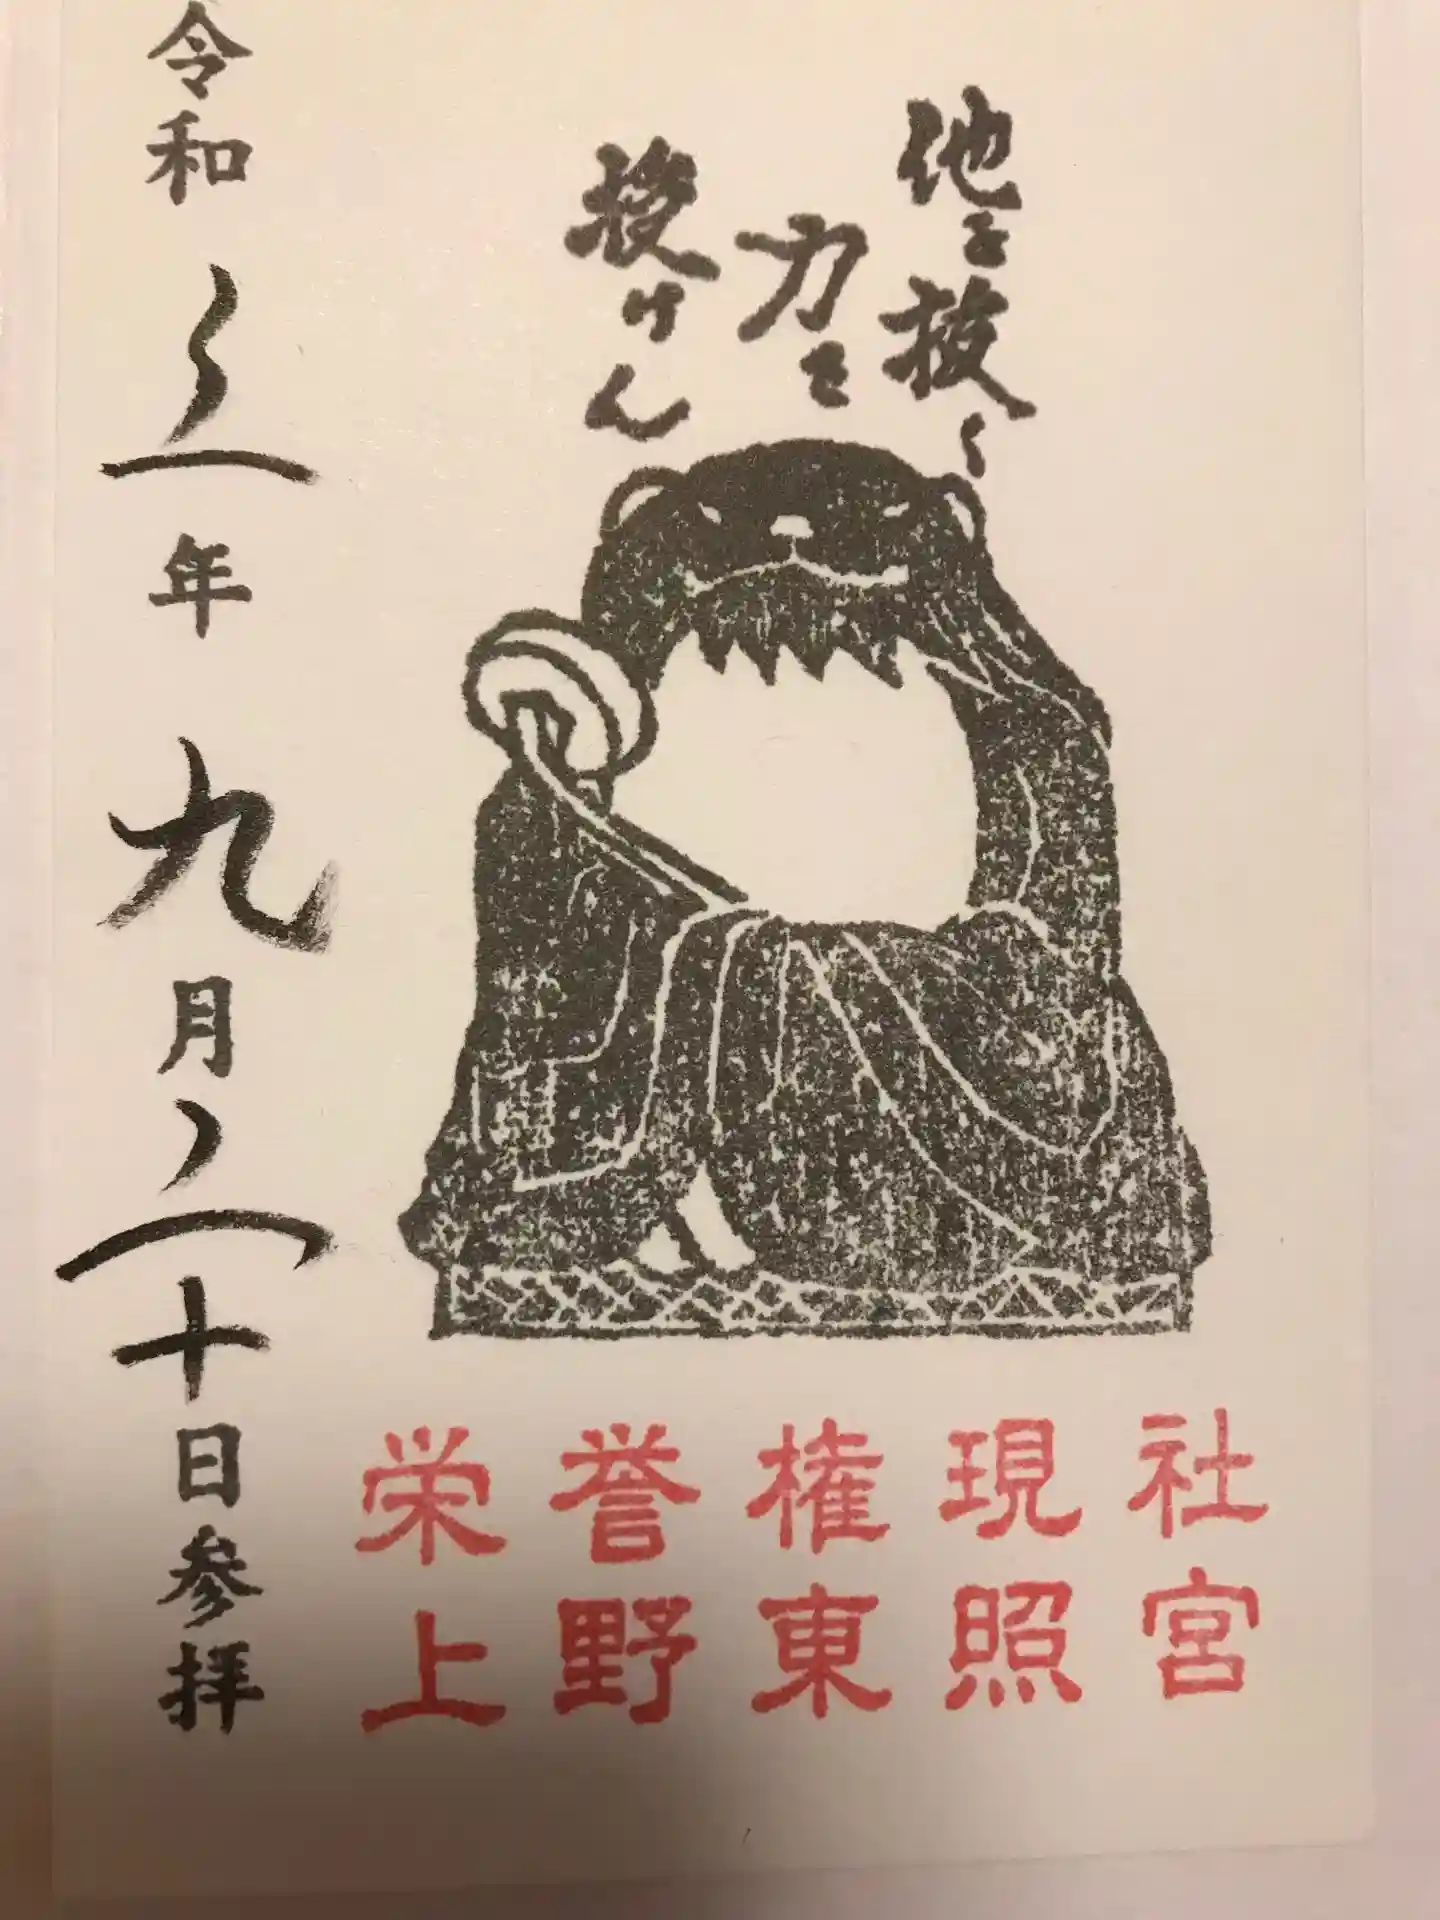 他を抜く
力を
授けん
栄誉権現社
上野東照宮
令和三年九月二十日参拝